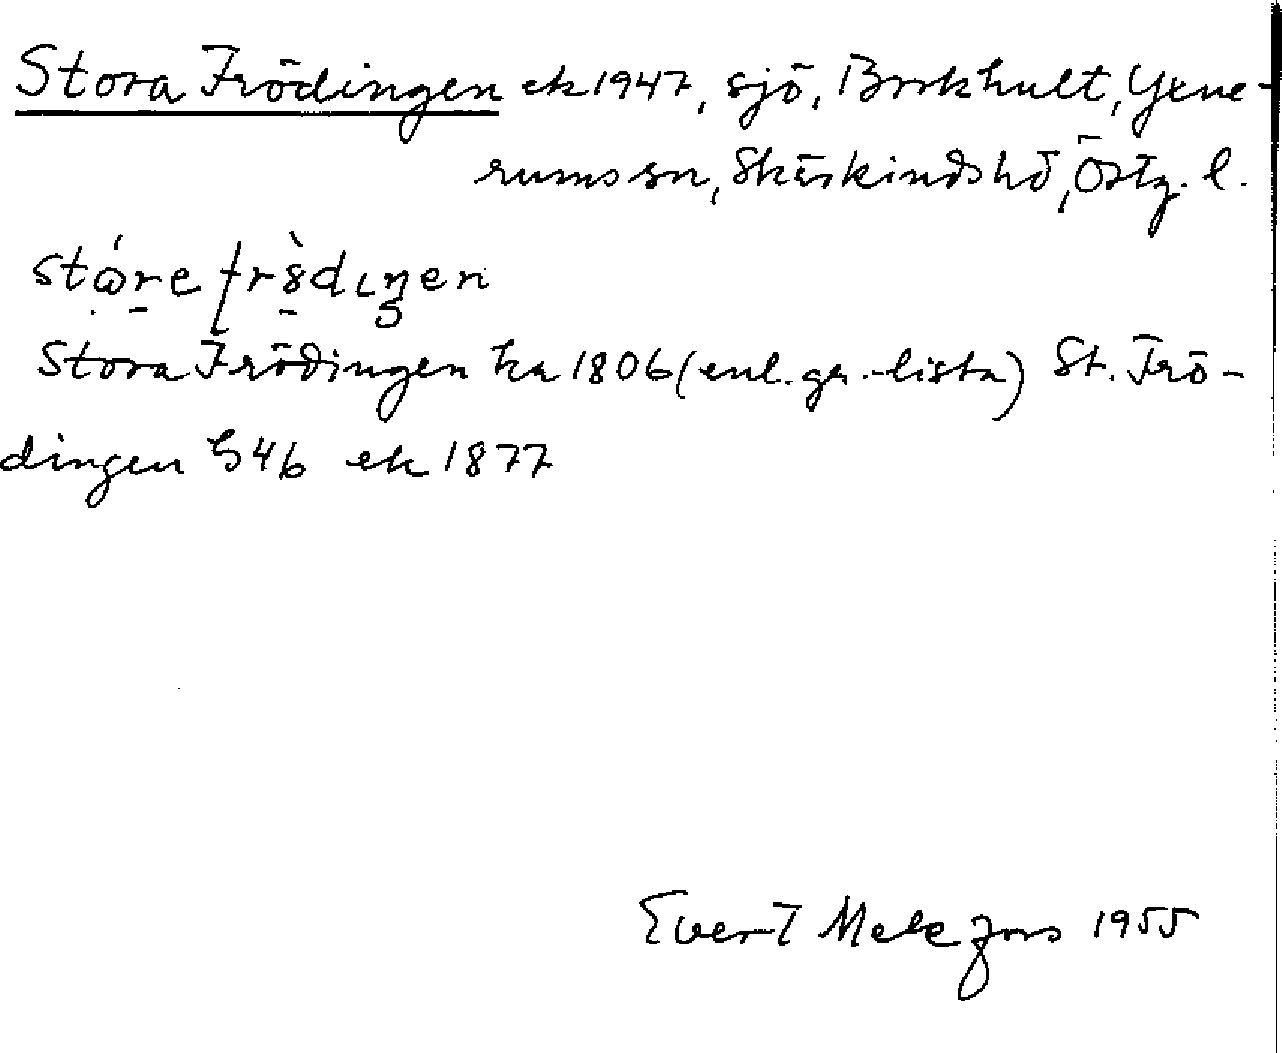 Stora Frödingen ek 1947, sjö, Brokhult, Yxne-
rums sn, Skärkinds hd, Östg. l.
stóre frödiŋen
Stora Frödingen ka 1806 (enl. ga.-lista) St. Frö-
dingen h46 ek 1877
Evert Melefors 1955